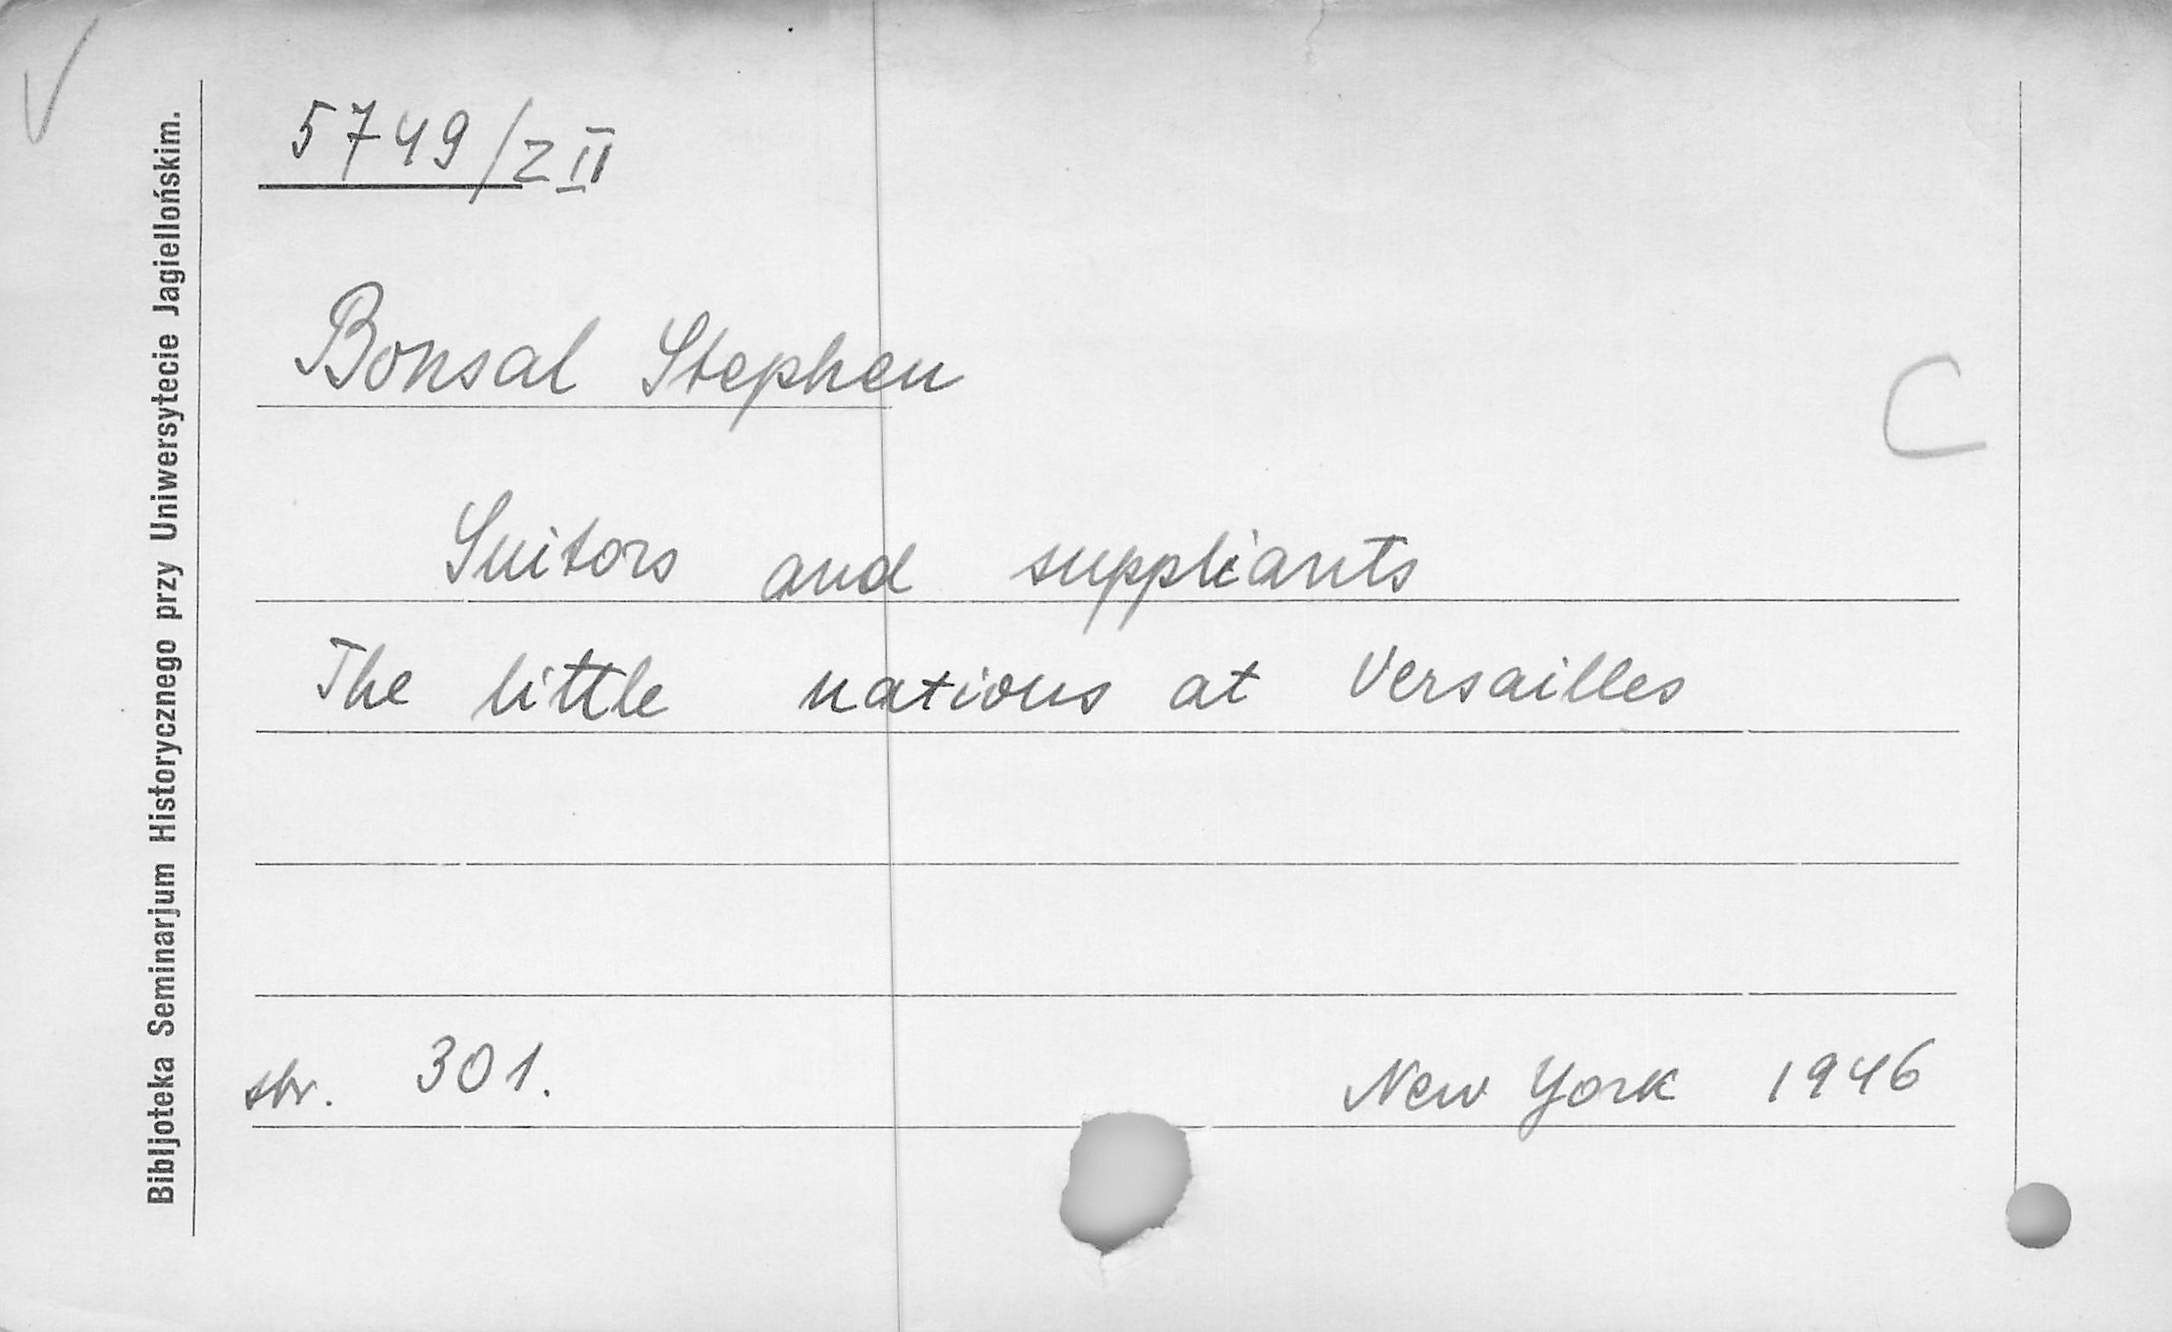 5749/Z II
Bonsal Stephen
C
Suitors and suppliants
The little nations at Versailles
str. 301.
New York 1946
Bibljoteka Seminarjum Historycznego przy Uniwersytecie Jagiellońskim.